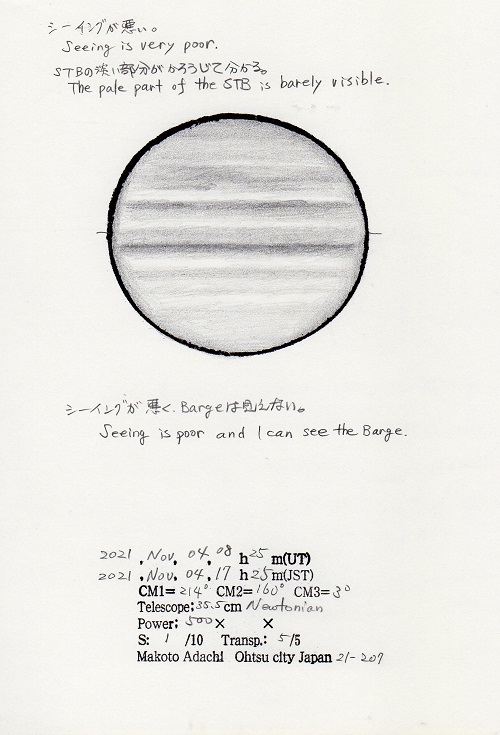 シーイングが悪い。
Seeing is very poor.
STBの淡い部分がかろうじて分かる。
The pale part of the STB is barely visible.
シーイングが悪く、Bargeは見えない。
Seeing is poor and I can see the Barge.
2021 , Nov, 04, 08 h 25 m(UT)
2021 , Nov, 04, 17 h 25 m(JST)
CM1= 214° CM2= 160° CM3= 3°
Telescope: 35.5 cm Newtonian
Power: 500 × ×
S: 1 /10 Transp.: 5 /5
Makoto Adachi Ohtsu city Japan 21-207